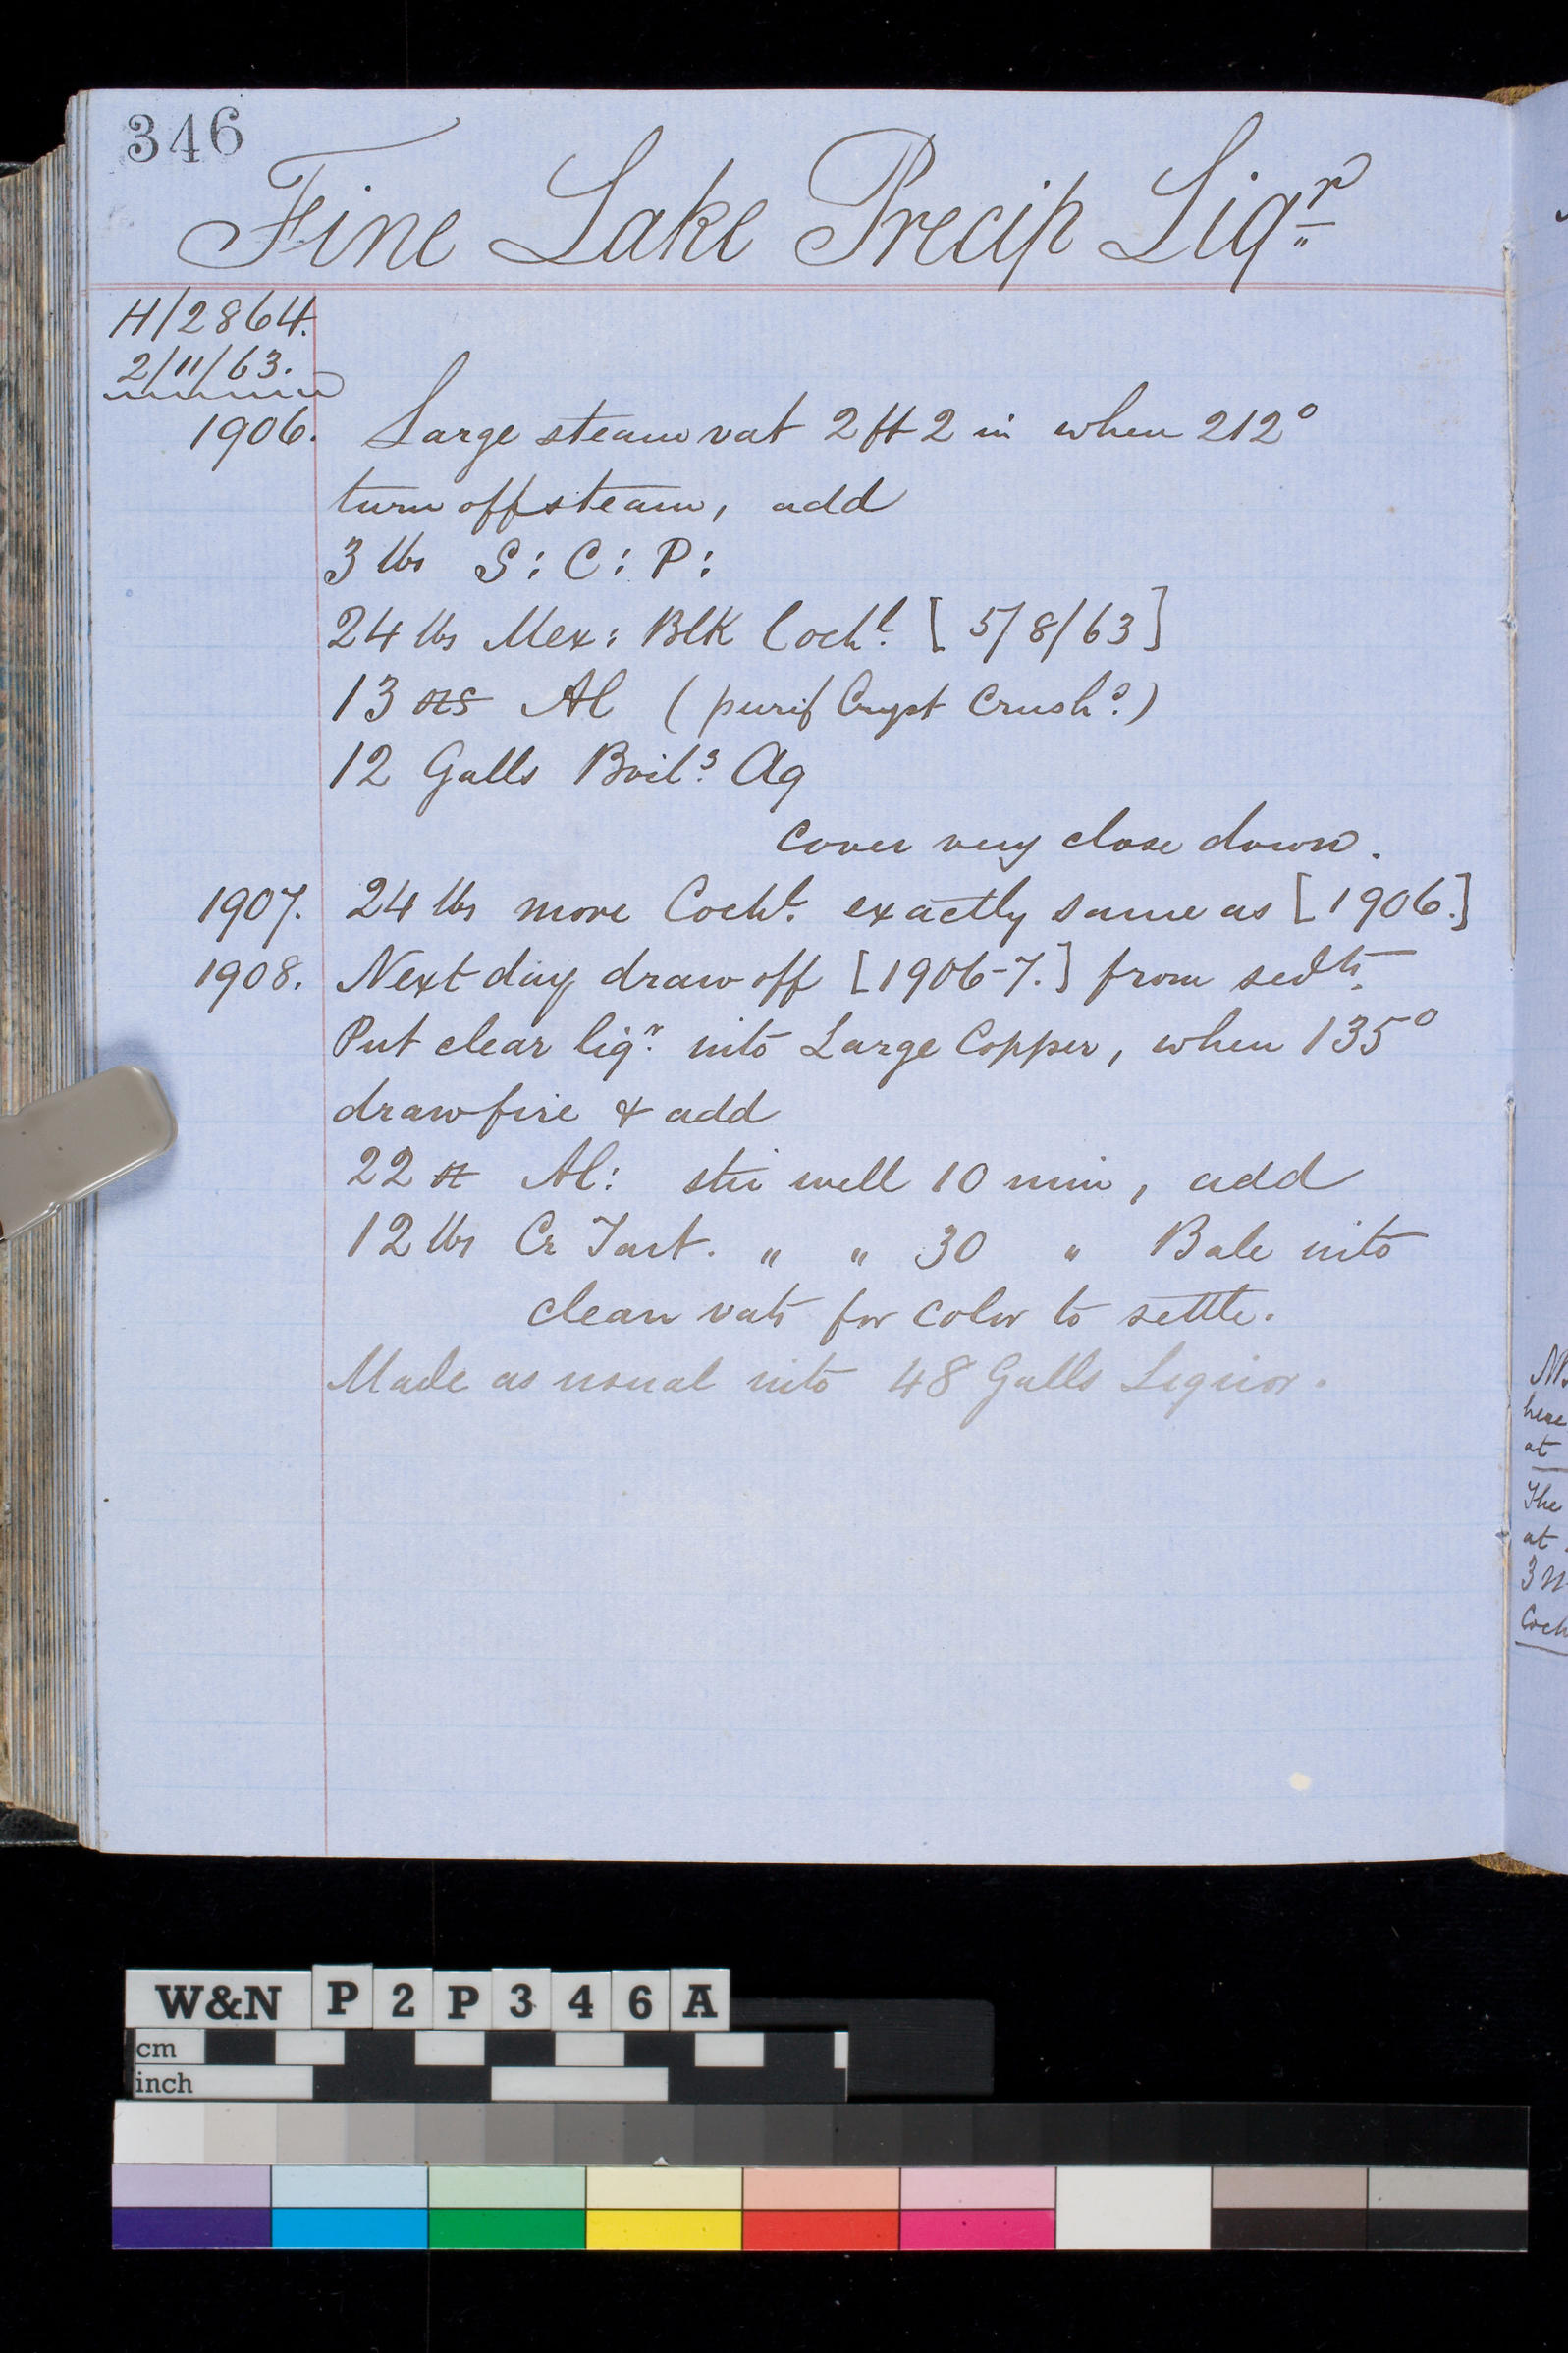 346
Fine Lake Precip Liqr
H/2864.
2/11/63.
1906. Large steam vat 2 ft 2 in when 212°
turn off steam, add
3 lbs S: C: P:
24 lbs Mex: Blk Cochl. [5/8/63]
13 ozs Al (purif Cryst Crushd.)
12 Galls Boilg. Aq
cover very close down.
1907. 24 lbs more Cochl. exactly same as [1906.]
1908. Next day draw off [1906-7.] from sedts.
Put clear liqr. into Large Copper, when 135°
draw fire & add
22 oz Al: stir well 10 min, add
12 lbs Cr Tart. " " 30 " Bale into
clean vats for color to settle.
Made as usual into 48 Galls Liquor.
here
at
The
at
Coch
W&N P2P346A
cm
inch